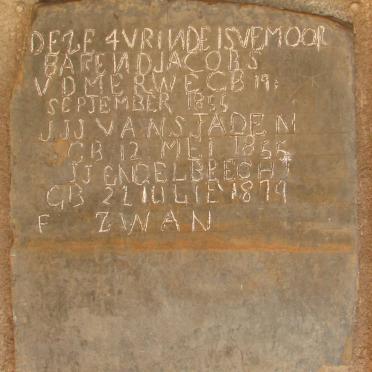 DEZE 4 VRINDE IS VEMOOR
BARENDJACOBS
V D MERWE GB 19
SEPTEMBER 1856
J J J VANSJADEN
GB 12 MEI 1855
JJ ENGELBRECHT
GB 22 IULIE 1879
F ZWAN